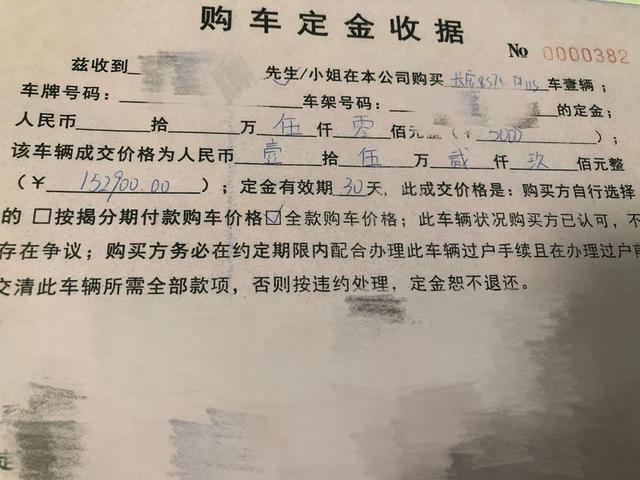 购车定金收据
No 0000382
兹收到 先生/小姐在本公司购买 长安CS75 PLUS 车壹辆；
车牌号码： 车架号码： 的定金：
人民币 拾 万 伍 仟 零 佰元整（￥ 5000 ）；
该车辆成交价格为人民币 壹 拾 伍 万 贰 仟 玖 佰元整
（￥ 152900.00 ）；定金有效期 30 天，此成交价格是：购买方自行选择
的 □按揭分期付款购车价格☑全款购车价格；此车辆状况购买方已认可，不
存在争议；购买方务必在约定期限内配合办理此车辆过户手续且在办理过户前
交清此车辆所需全部款项，否则按违约处理，定金恕不退还。